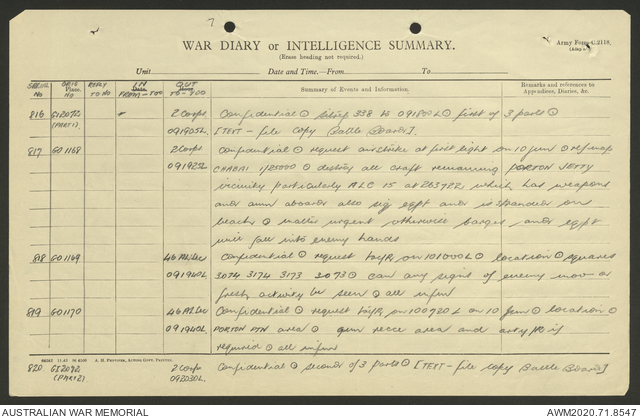 7
WAR DIARY OR INTELLIGENCE SUMMARY.
Army Form C.2118.
(Erase heading not required.)
Unit Date and Time.—From To
SERIAL NO ORIG NO REPLY TO NO IN FROM - TOO OUT TO - TOO Summary of Events and Information. Remarks and references to Appendices, Diaries, &c.
816 GI2072 2 Corps Confidential ⊙ Sitrep 338 to 091800L ⊙ first of 3 parts ⊙
(PART1) 091905L [TEXT - file copy Battle Board].
817 GO1168 2 Corps Confidential ⊙ request airstrike at first light on 10 jun ⊙ ref map
091925L CHABAI 1/25000 ⊙ destroy all craft remaining PORTON JETTY
vicinity particularly ALC 15 at 263722 which has weapons
and amn aboard also sig eqpt and is stranded on
beach ⊙ matter urgent otherwise barges and eqpt
will fall into enemy hands
818 GO1169 Confidential ⊙ request tac/R on 101000L ⊙ location ⊙ squares
091940L 3074 3174 3173 3073 ⊙ can any signs of enemy mov or
fresh activity be seen ⊙ all infm
819 GO1170 Confidential ⊙ request tac/R on 100920L on 10 jun ⊙ location ⊙
091940L PORTON PTN area ⊙ recce area and arty/R if
required ⊙ all infm
A. H. PETTIFER, ACTING GOVT. PRINTER.
820 GI2072 2 Corps Confidential ⊙ second of 3 parts ⊙ [TEXT - file copy Battle Board]
(PART2) 092030L
AUSTRALIAN WAR MEMORIAL
AWM2020.71.8547